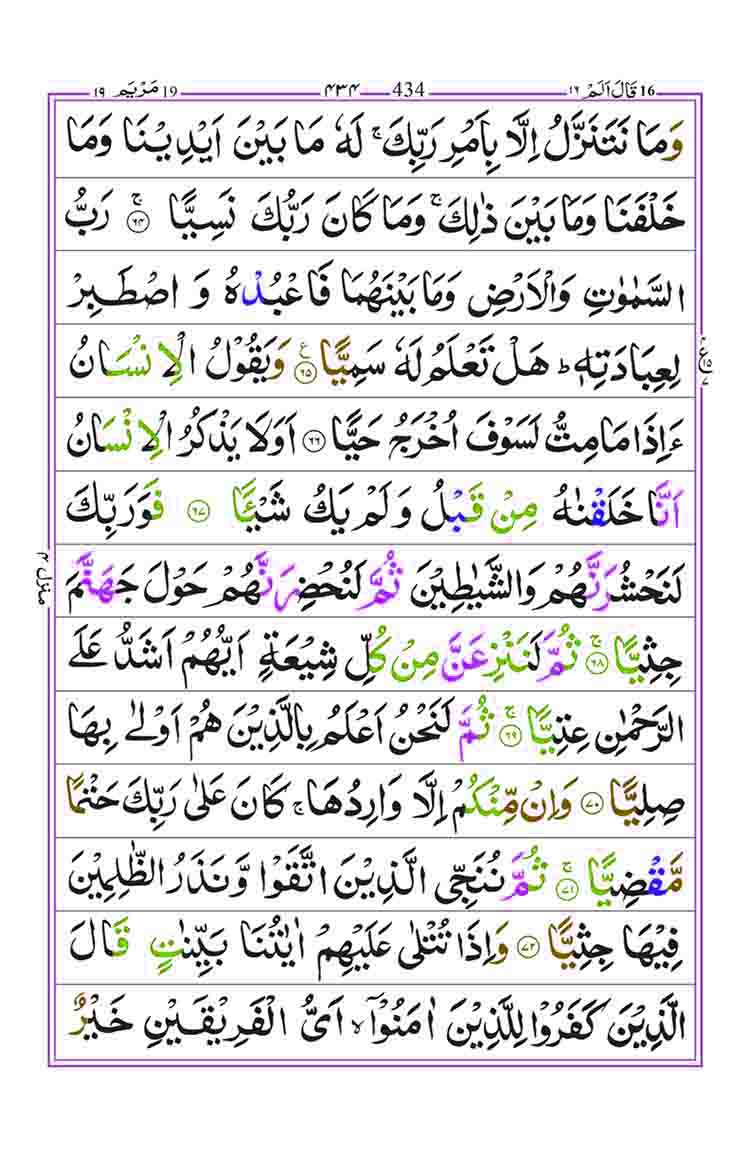 16 قَالَ اَلَمْ ١٦ 434 ۴۳۴ 19 مَرْيَم ١٩
وَمَا نَتَنَزَّلُ اِلَّا بِاَمْرِ رَبِّكَ ۚ لَهٗ مَا بَيْنَ اَيْدِيْنَا وَمَا
خَلْفَنَا وَمَا بَيْنَ ذٰلِكَ ۚ وَمَا كَانَ رَبُّكَ نَسِيًّا ۚ ﴿۶۴﴾ رَبُّ
السَّمٰوٰتِ وَالْاَرْضِ وَمَا بَيْنَهُمَا فَاعْبُدْهُ وَ اصْطَبِرْ
لِعِبَادَتِهٖ ؕ هَلْ تَعْلَمُ لَهٗ سَمِيًّا ﴿۶۵﴾ ع وَيَقُوْلُ الْاِنْسَانُ
ءَاِذَا مَا مِتُّ لَسَوْفَ اُخْرَجُ حَيًّا ﴿۶۶﴾ اَوَلَا يَذْكُرُ الْاِنْسَانُ
اَنَّا خَلَقْنٰهُ مِنْ قَبْلُ وَلَمْ يَكُ شَيْـًٔا ﴿۶۷﴾ فَوَرَبِّكَ
لَنَحْشُرَنَّهُمْ وَالشَّيٰطِيْنَ ثُمَّ لَنُحْضِرَنَّهُمْ حَوْلَ جَهَنَّمَ
جِثِيًّا ۚ ﴿۶۸﴾ ثُمَّ لَنَنْزِعَنَّ مِنْ كُلِّ شِيْعَةٍ اَيُّهُمْ اَشَدُّ عَلَى
الرَّحْمٰنِ عِتِيًّا ۚ ﴿۶۹﴾ ثُمَّ لَنَحْنُ اَعْلَمُ بِالَّذِيْنَ هُمْ اَوْلٰى بِهَا
صِلِيًّا ﴿۷۰﴾ وَاِنْ مِّنْكُمْ اِلَّا وَارِدُهَا ۚ كَانَ عَلٰى رَبِّكَ حَتْمًا
مَّقْضِيًّا ۚ ﴿۷۱﴾ ثُمَّ نُنَجِّى الَّذِيْنَ اتَّقَوْا وَّنَذَرُ الظّٰلِمِيْنَ
فِيْهَا جِثِيًّا ﴿۷۲﴾ وَاِذَا تُتْلٰى عَلَيْهِمْ اٰيٰتُنَا بَيِّنٰتٍ قَالَ
الَّذِيْنَ كَفَرُوْا لِلَّذِيْنَ اٰمَنُوْۤا ۙ اَىُّ الْفَرِيْقَيْنِ خَيْرٌ
منزل ۴